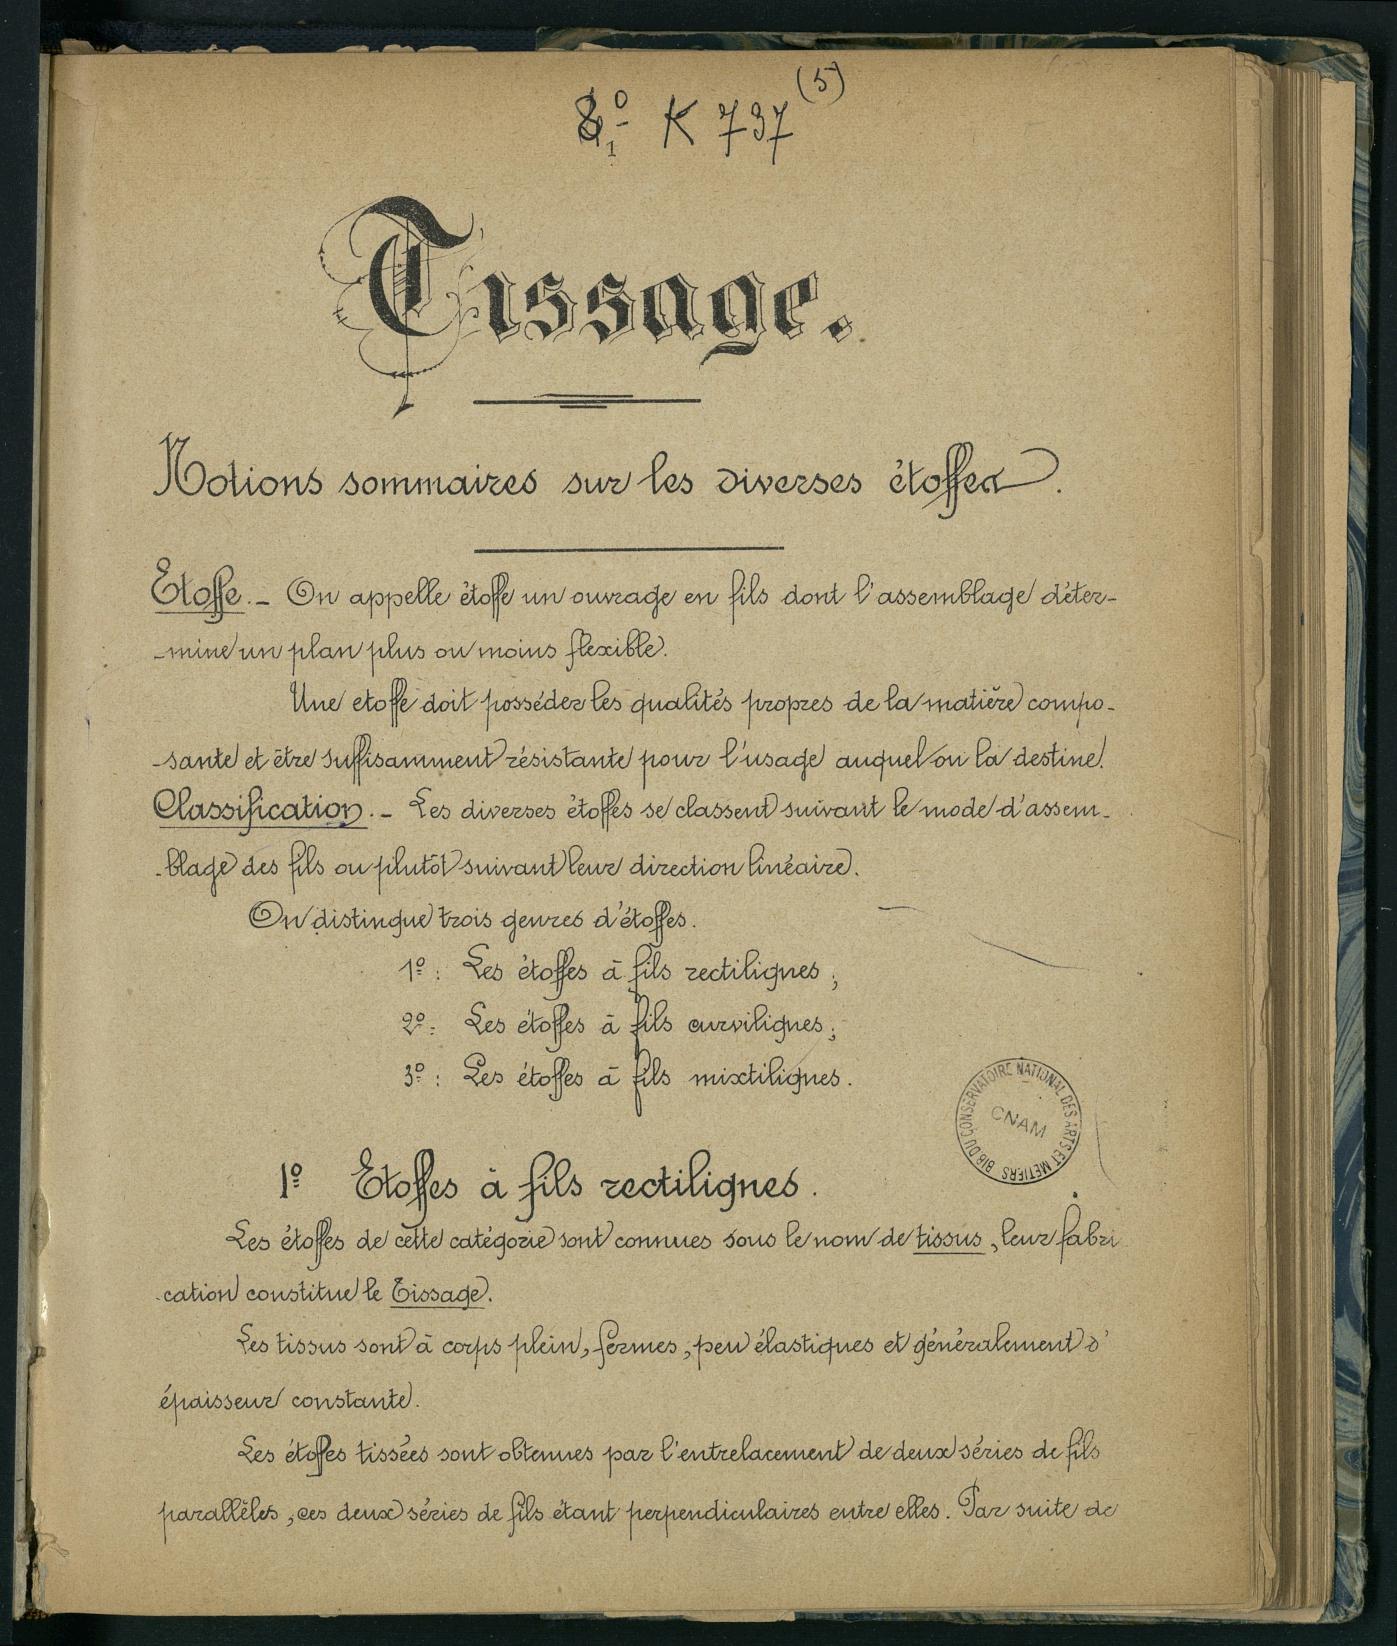 8º K 737 (5)
1
Tissage.
Notions sommaires sur les diverses étoffes.
Etoffe. _ On appelle étoffe un ouvrage en fils dont l'assemblage déter-
-mine un plan plus ou moins flexible.
Une etoffe doit posséder les qualités propres de la matière compo-
-sante et être suffisamment résistante pour l'usage auquel on la destine.
Classification. _ Les diverses étoffes se classent suivant le mode d'assem-
-blage des fils ou plutôt suivant leur direction linéaire.
On distingue trois genres d'étoffes.
1º : Les étoffes à fils rectilignes ;
2º : Les étoffes à fils curvilignes ;
3º : Les étoffes à fils mixtilignes.
BIB DU CONSERVATOIRE NATIONAL DES ARTS ET METIERS
CNAM
1º Etoffes à fils rectilignes.
Les étoffes de cette catégorie sont connues sous le nom de tissus, leur fabri
-cation constitue le Tissage.
Les tissus sont à corps plein, fermes, peu élastiques et généralement d'
épaisseur constante.
Les étoffes tissées sont obtenues par l'entrelacement de deux séries de fils
parallèles, ces deux séries de fils étant perpendiculaires entre elles. Par suite de